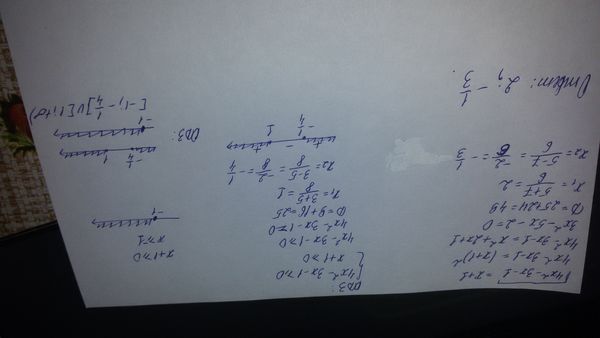 √(4x²-3x-1) = x+1
4x²-3x-1 = (x+1)²
4x²-3x-1 = x²+2x+1
3x²-5x-2=0
D=25+24=49
x₁ = (5+7)/6 = 2
x₂ = (5-7)/6 = -2/6 = -1/3
Ответ: 2; -1/3.
ОДЗ:
{ 4x²-3x-1≥0
{ x+1≥0
4x²-3x-1≥0
4x²-3x-1=0
D=9+16=25
x₁ = (3+5)/8 = 1
x₂ = (3-5)/8 = -2/8 = -1/4
+ - +
-1/4 1
x+1≥0
x≥-1
-1
ОДЗ:
-1/4 1
-1
[-1;-1/4]∪[1;+∞)